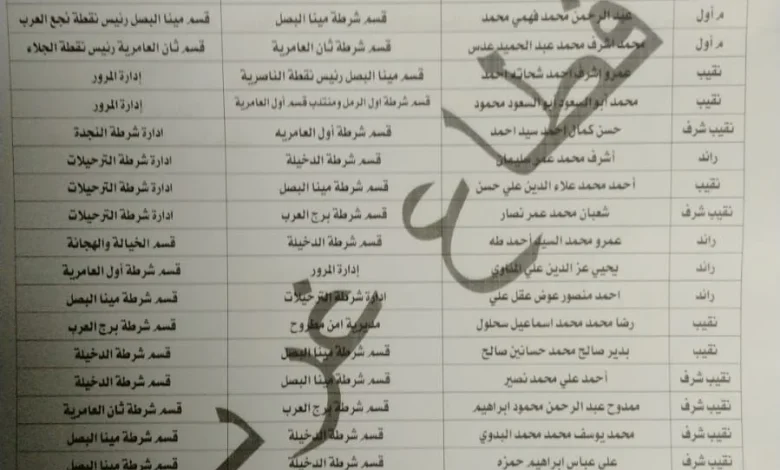 م أول عبد الرحمن محمد فهمي محمد قسم شرطة مينا البصل قسم مينا البصل رئيس نقطة نجع العرب
م أول محمد اشرف محمد عبد الحميد عدس قسم شرطة ثان العامرية قسم ثان العامرية رئيس نقطة الجلاء
نقيب عمرو اشرف احمد شحاته احمد قسم مينا البصل رئيس نقطة الناصرية إدارة المرور
نقيب محمد أبو السعود ابو السعود محمود قسم شرطة اول الرمل ومنتدب قسم أول العامرية إدارة المرور
نقيب شرف حسن كمال احمد سيد احمد قسم شرطة أول العامريه ادارة شرطة النجدة
رائد أشرف محمد عمر سليمان قسم شرطة الدخيلة ادارة شرطة الترحيلات
نقيب أحمد محمد علاء الدين علي حسن قسم شرطة مينا البصل ادارة شرطة الترحيلات
نقيب شرف شعبان محمد عمر نصار قسم شرطة برج العرب ادارة شرطة الترحيلات
رائد عمرو محمد السيد أحمد طه قسم شرطة الدخيلة قسم الخيالة والهجانة
رائد يحيي عز الدين علي المناوي إدارة المرور قسم شرطة أول العامرية
رائد احمد منصور عوض عقل علي إدارة شرطة الترحيلات قسم شرطة مينا البصل
نقيب رضا محمد محمد اسماعيل سحلول مديرية امن مطروح قسم شرطة برج العرب
نقيب بدير صالح محمد حسانين صالح قسم شرطة مينا البصل قسم شرطة الدخيلة
نقيب شرف أحمد علي محمد نصير قسم شرطة مينا البصل قسم شرطة الدخيلة
نقيب شرف ممدوح عبد الرحمن محمود ابراهيم قسم شرطة برج العرب قسم شرطة ثان العامرية
نقيب شرف محمد يوسف محمد محمد البدوي قسم شرطة الدخيلة قسم شرطة مينا البصل
نقيب شرف علي عباس ابراهيم حمزه قسم شرطة الدخيلة قسم شرطة مينا البصل
قطاع غرب